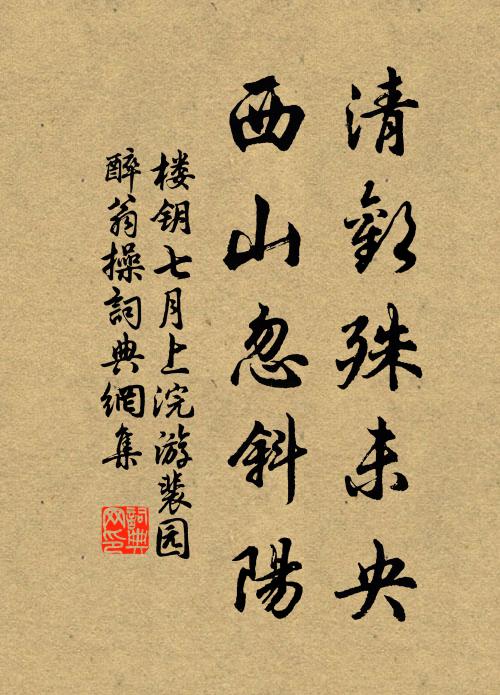 清歡殊未央
西山忽斜陽
楼钥七月上浣游裴园
醉翁操詞典網集
詞典网印